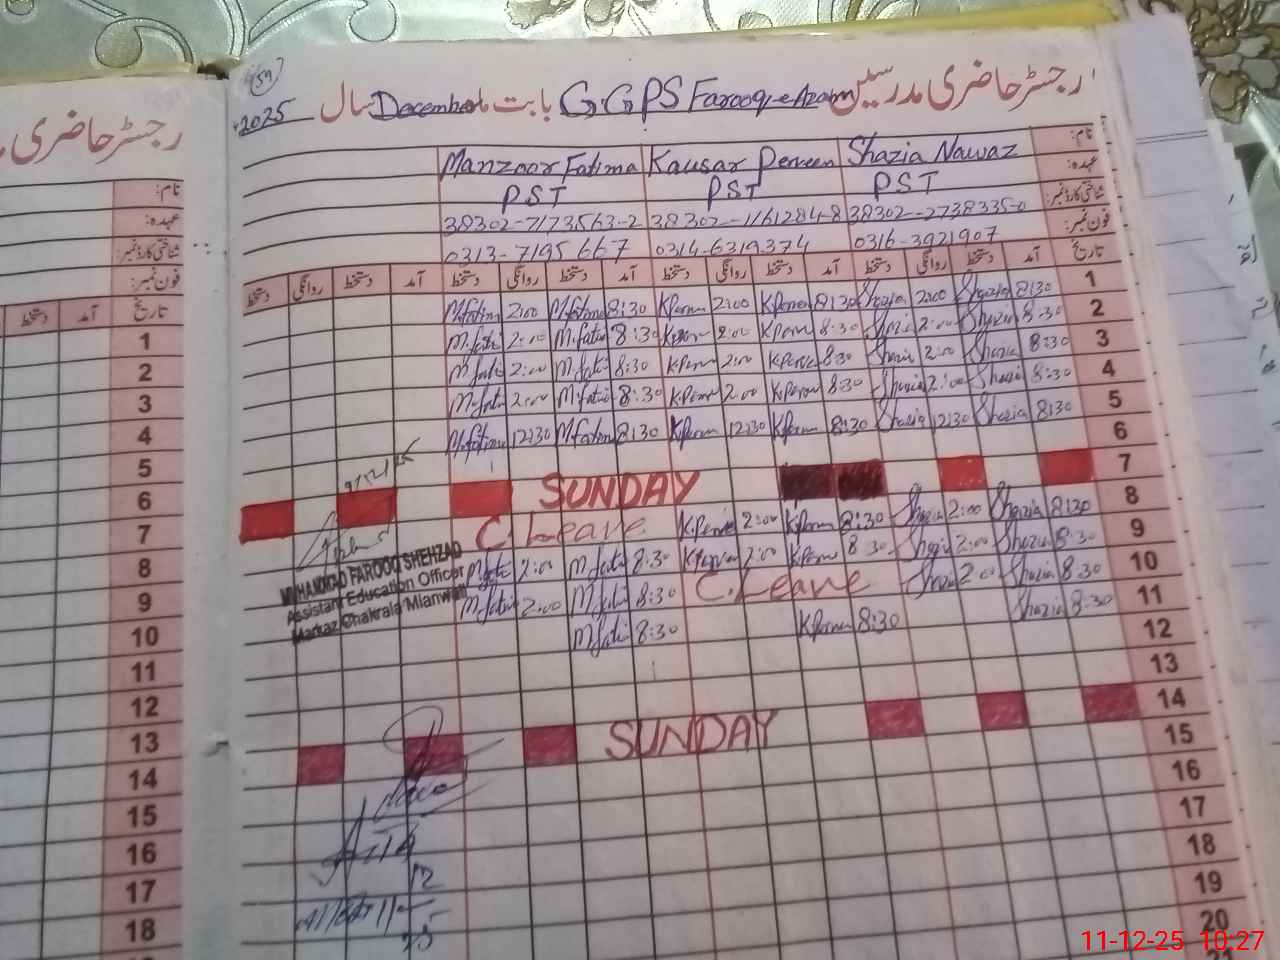 رجسٹر حاضری مدرسین G.GPS Farooq-e-Azam بابت ماہ December سال 2025
(59)
نام: Manzoor Fatima Kausar Perveen Shazia Nawaz
عہدہ: PST PST PST
شناختی کارڈ نمبر: 38302-7173563-2 38302-1161284-8 38302-2738335-0
فون نمبر: 0313-7195667 0314-6319374 0316-3921907
تاریخ آمد دستخط روانگی دستخط آمد دستخط روانگی دستخط آمد دستخط روانگی دستخط آمد دستخط روانگی دستخط
1 M.fatima 2:00 M.fatima 8:30 K.Perveen 2:00 K.Perveen 8:30 Shazia 2:00 Shazia 8:30
2 M.fati 2:00 M.fati 8:30 K.Perveen 2:00 K.Perveen 8:30 Shazia 2:00 Shazia 8:30
3 M.fati 2:00 M.fati 8:30 K.Perveen 2:00 K.Perveen 8:30 Shazia 2:00 Shazia 8:30
4 M.fati 2:00 M.fati 8:30 K.Perveen 2:00 K.Perveen 8:30 Shazia 2:00 Shazia 8:30
5 M.fatima 12:30 M.fatima 8:30 K.Perveen 12:30 K.Perveen 8:30 Shazia 12:30 Shazia 8:30
6
7 SUNDAY
8 C.Leave K.Perveen 2:00 K.Perveen 8:30 Shazia 2:00 Shazia 8:30
9 M.fati 2:00 M.fati 8:30 K.Perveen 2:00 K.Perveen 8:30 Shazia 2:00 Shazia 8:30
10 M.fati 2:00 M.fati 8:30 C.Leave Shazia 2:00 Shazia 8:30
11 M.fati 8:30 K.Perveen 8:30 Shazia 8:30
12
13
14 SUNDAY
15
16
17
18
19
20
MUHAMMAD FAROOQ SHEHZAD
Assistant Education Officer
Markaz Chakrala Mianwali
رجسٹر حاضری
نام:
عہدہ:
شناختی کارڈ نمبر:
فون نمبر:
تاریخ آمد دستخط
1
2
3
4
5
6
7
8
9
10
11
12
13
14
15
16
17
18
11-12-25 10:27